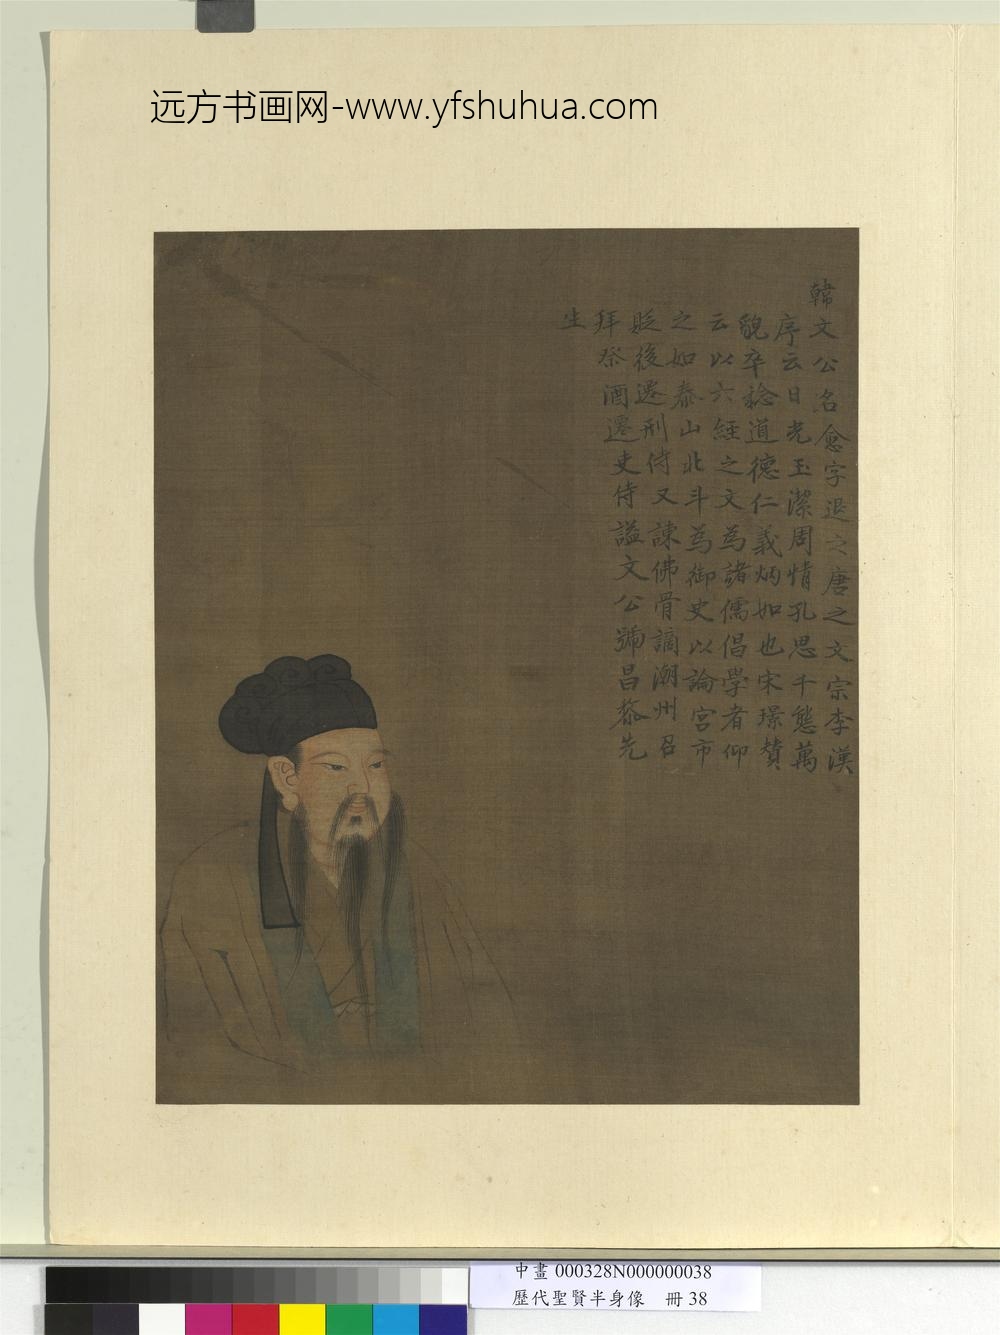 远方书画网-www.yfshuhua.com
韓文公名愈字退之唐之文宗李漢
序云日光玉潔周情孔思千態萬
貌卒稔道德仁義炳如也宋璟賛
云以六經之文為諸儒倡學者仰
之如泰山北斗為御史以論宮市
貶後遷刑侍又諫佛骨謫潮州召
拜祭酒遷吏侍謚文公號昌黎先
生
中畫 000328N000000038
歷代聖賢半身像 冊 38